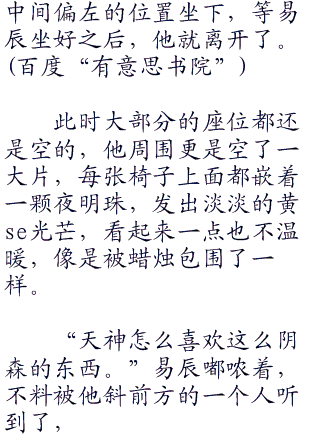 中间偏左的位置坐下，等易
辰坐好之后，他就离开了。
(百度“有意思书院”)
此时大部分的座位都还
是空的，他周围更是空了一
大片，每张椅子上面都嵌着
一颗夜明珠，发出淡淡的黄
se光芒，看起来一点也不温
暖，像是被蜡烛包围了一
样。
“天神怎么喜欢这么阴
森的东西。”易辰嘟哝着，
不料被他斜前方的一个人听
到了，